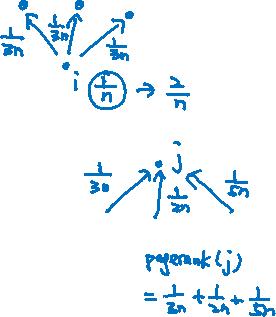 1/3n 1/3n 1/3n
i 1/n → 2/n
j
1/3n 1/2n 1/5n
pagerank(j)
= 1/3n + 1/2n + 1/5n